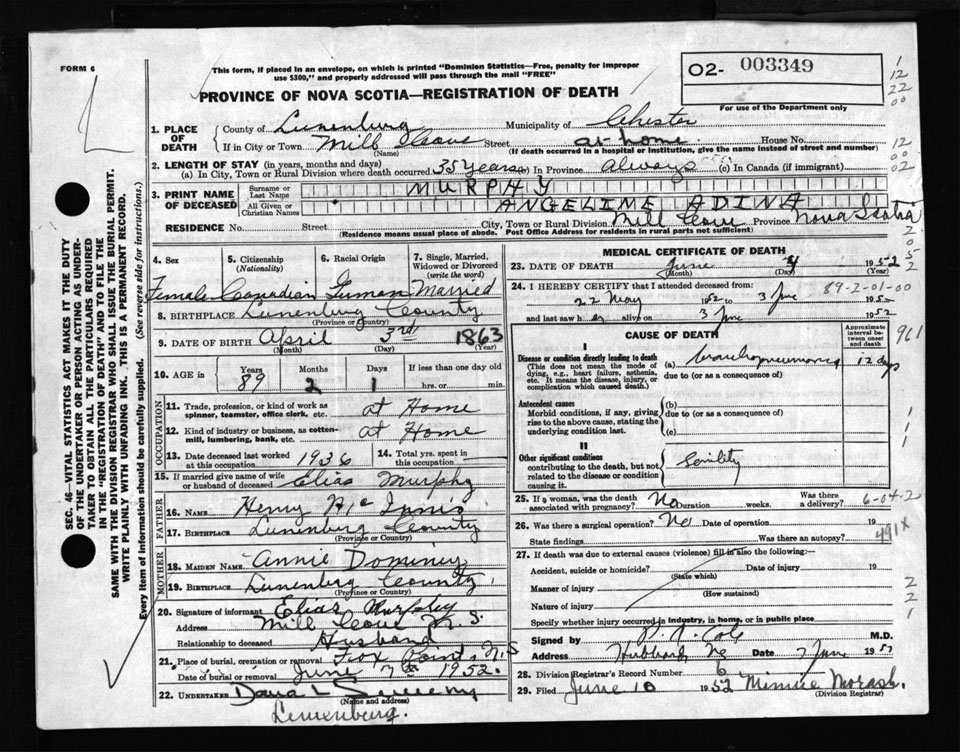 FORM 6
This form, if placed in an envelope, on which is printed "Dominion Statistics—Free, penalty for improper
use $300," and properly addressed will pass through the mail "FREE"
O2- 003349
For use of the Department only
PROVINCE OF NOVA SCOTIA—REGISTRATION OF DEATH
1. PLACE OF DEATH County of Lunenburg Municipality of Chester
If in City or Town Mill Cove Street at home House No.
(Name) (If death occurred in a hospital or institution, give the name instead of street and number)
2. LENGTH OF STAY (in years, months and days)
(a) In City, Town or Rural Division where death occurred 35 years (b) In Province Always (c) In Canada (if immigrant)
3. PRINT NAME OF DECEASED Surname or Last Name MURPHY
All Given or Christian Names ANGELINE ADINA
RESIDENCE No. Street City, Town or Rural Division Mill Cove Province Nova Scotia
(Residence means usual place of abode. Post Office Address for residents in rural parts not sufficient)
4. Sex 5. Citizenship (Nationality) 6. Racial Origin 7. Single, Married, Widowed or Divorced (write the word)
Female Canadian German Married
8. BIRTHPLACE Lunenburg County
(Province or Country)
9. DATE OF BIRTH April 3rd 1863
(Month) (Day) (Year)
10. AGE in Years Months Days If less than one day old
89 2 1 hrs. or min.
OCCUPATION
11. Trade, profession, or kind of work as spinner, teamster, office clerk, etc. at Home
12. Kind of industry or business, as cotton-mill, lumbering, bank, etc. at Home
13. Date deceased last worked at this occupation 1936 14. Total yrs. spent in this occupation
15. If married give name of wife or husband of deceased Elias Murphy
FATHER
16. NAME Henry Mc Innis
17. BIRTHPLACE Lunenburg County
(Province or Country)
MOTHER
18. MAIDEN NAME Annie Dominey
19. BIRTHPLACE Lunenburg County
(Province or Country)
20. Signature of informant Elias Murphy
Address Mill Cove N. S.
Relationship to deceased Husband
21. Place of burial, cremation or removal Fox Point N.S
Date of burial or removal June 7th 1952.
22. UNDERTAKER Dana L Sweeny
(Name and address)
Lunenburg.
MEDICAL CERTIFICATE OF DEATH
23. DATE OF DEATH June 4 1952
(Month) (Day) (Year)
24. I HEREBY CERTIFY that I attended deceased from: 89-2-01-00
22 May 1952 to 3 June 1952
and last saw her alive on 3 June 1952
CAUSE OF DEATH
Approximate interval between onset and death
I
Disease or condition directly leading to death (a) Bronchopneumonia 12 days
(This does not mean the mode of dying, e.g., heart failure, asthenia, etc. It means the disease, injury, or complication which caused death.)
due to (or as a consequence of)
Antecedent causes (b)
Morbid conditions, if any, giving rise to the above cause, stating the underlying condition last.
due to (or as a consequence of)
(c)
II
Other significant conditions
contributing to the death, but not related to the disease or condition causing it.
Senility
961
25. If a woman, was the death associated with pregnancy? No Duration weeks. Was there a delivery? 6-04-2
26. Was there a surgical operation? No Date of operation 19
State findings Was there an autopsy? 491X
27. If death was due to external causes (violence) fill in also the following:
Accident, suicide or homicide? Date of injury 19
(State which)
Manner of injury
(How sustained)
Nature of injury
Specify whether injury occurred in industry, in home, or in public place
Signed by M.D.
Address Hubbards NS Date 7 June 1952
28. Division Registrar's Record Number 6
29. Filed June 10 1952 Minnie Morash.
(Division Registrar)
SEC. 46—VITAL STATISTICS ACT MAKES IT THE DUTY
OF THE UNDERTAKER OR PERSON ACTING AS UNDER-
TAKER TO OBTAIN ALL THE PARTICULARS REQUIRED
IN THE "REGISTRATION OF DEATH" AND TO FILE THE
SAME WITH THE DIVISION REGISTRAR WHO SHALL ISSUE THE BURIAL PERMIT.
WRITE PLAINLY WITH UNFADING INK. THIS IS A PERMANENT RECORD.
Every item of information should be carefully supplied. (See reverse side for instructions.)